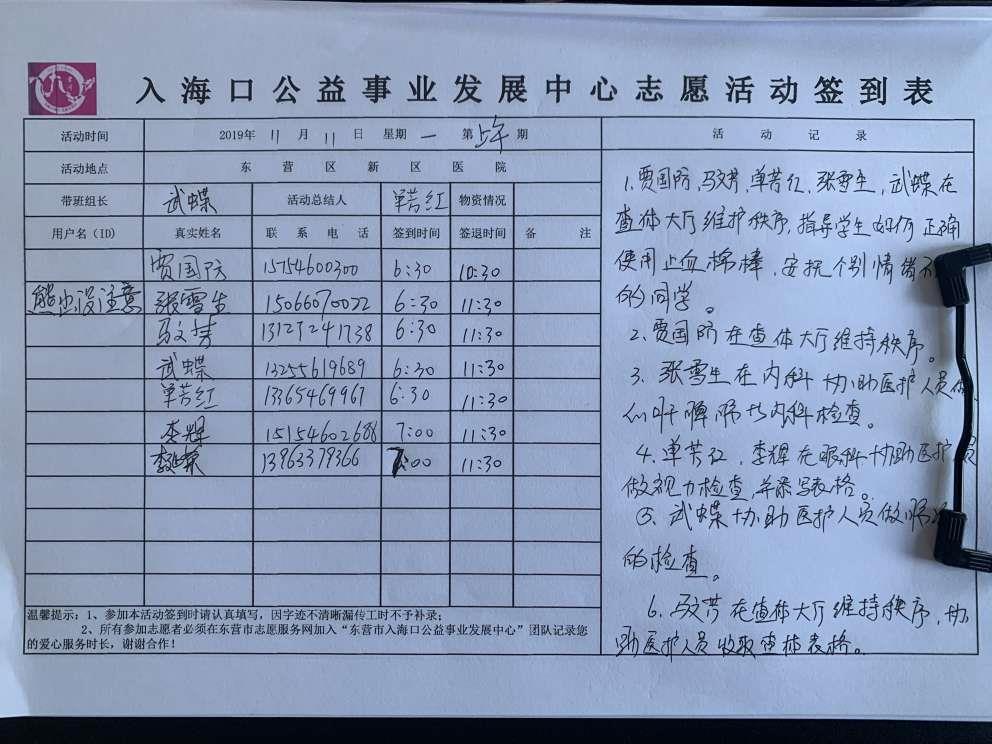 入海口公益事业发展中心志愿活动签到表
活动时间 2019年 11 月 11 日 星期 一 第 上午 期
活动地点 东营区新区医院
带班组长 武蝶 活动总结人 单芳红 物资情况
用户名(ID) 真实姓名 联系电话 签到时间 签退时间 备注
贾国防 15754600300 6:30 10:30
熊出没注意 张雪生 15066070022 6:30 11:30
马文芳 13127241738 6:30 11:30
武蝶 13255619689 6:30 11:30
单芳红 13365469967 6:30 11:30
李辉 15154602686 7:00 11:30
13963379366 7:00 11:30
温馨提示:1、参加本活动签到时请认真填写,因字迹不清晰漏传工时不予补录;
2、所有参加志愿者必须在东营市志愿服务网加入“东营市入海口公益事业发展中心”团队记录您
的爱心服务时长,谢谢合作!
活动记录
1、贾国防、马文芳、单芳红、张雪生、武蝶在
查体大厅维护秩序,指导学生如何正确
使用止血棉棒,安抚个别情绪不
的同学。
2、贾国防在查体大厅维持秩序。
3、张雪生在内科协助医护人员做
心肝脾肺等内科检查。
4、单芳红、李辉在眼科协助医护人员
做视力检查,并添写表格。
5、武蝶协助医护人员做
的检查。
6、马文芳在查体大厅维持秩序,协
助医护人员收取查体表格。